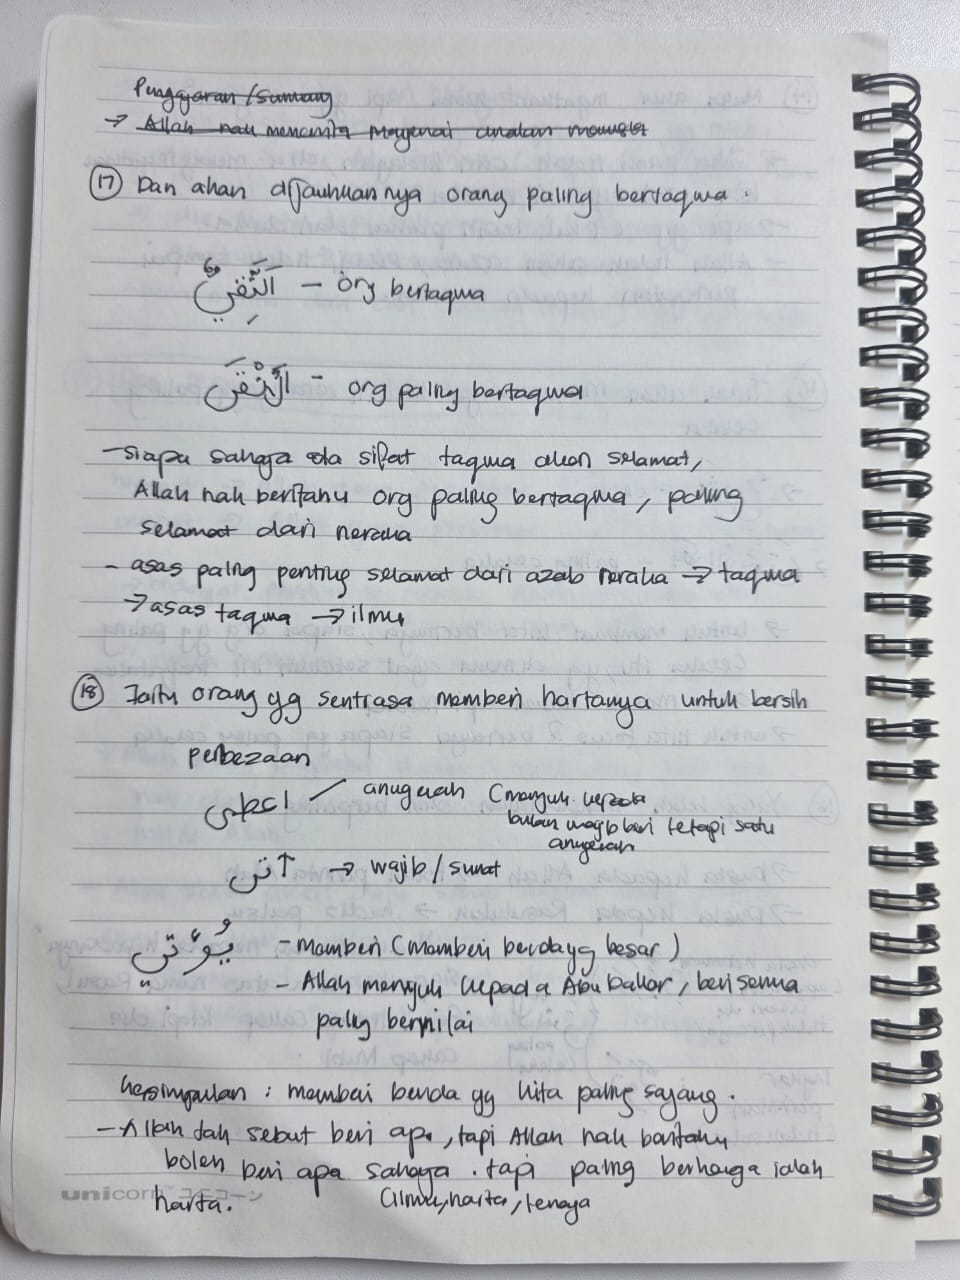 Pengajaran / Sumang
→ Allah nak mencerita mengenai amalan manusia
17 Dan akan dijauhkannya orang paling bertaqwa.
اَلتَّقِيُّ – org bertaqwa
اَلْأَتْقَى – org paling bertaqwa
- siapa sahaja ada sifat taqwa akan selamat,
Allah nak beritahu org paling bertaqwa, paling
selamat dari neraka
- asas paling penting selamat dari azab neraka → taqwa
→ asas taqwa → ilmu
18 Iaitu orang yg sentiasa memberi hartanya untuk bersih
perbezaan
اعطى anugerah (merujuk kepada
bukan wajib beri tetapi satu
anugerah
آتى → wajib/sunat
يُؤْتى - memberi (memberi benda yg besar)
- Allah merujuk kepada Abu bakar, beri semua
paling bernilai
kesimpulan : memberi benda yg kita paling sayang.
- Allah tak sebut beri apa, tapi Allah nak beritahu
boleh beri apa sahaja. tapi paling berharga ialah
harta. (ilmu, harta, tenaga
unicorn ユニコーン